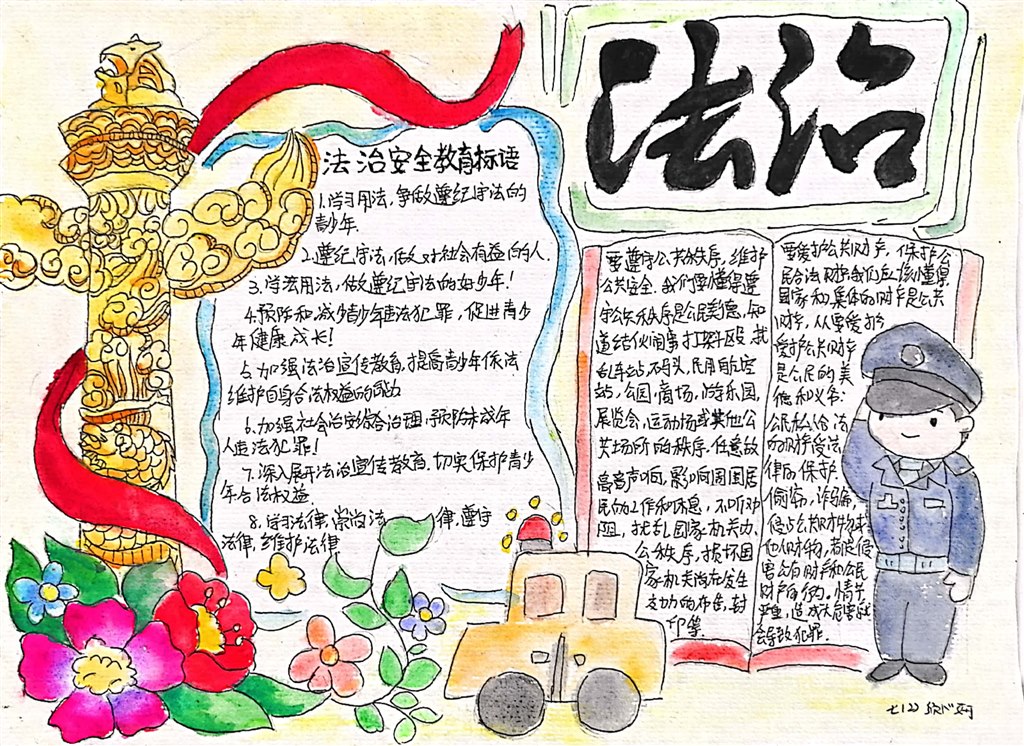 法治
法治安全教育标语
1.学习用法,争做遵纪守法的
青少年.
2.遵纪守法,做对社会有益的人.
3.学法用法,做遵纪守法的好少年!
4.预防和减少青少年违法犯罪,促进青少
年健康成长!
5.加强法治宣传教育,提高青少年依法
维护自身合法权益的能力
6.加强社会治安综合治理,预防未成年
人违法犯罪!
7.深入展开法治宣传教育.切实保护青少
年合法权益.
8.学习法律,崇尚法 律,遵守
法律,维护法律
要遵守公共秩序,维护
公共安全.我们要懂得遵
守公共秩序是公民美德,知
道结伙闹事打架斗殴,扰
乱车站,码头,民用航空
站,公园,商场,游乐园,
展览会,运动场或其他公
共场所的秩序.任意放
高音声响,影响周围居
民的工作和休息,不听劝
阻,扰乱国家机关办
公秩序,损坏国
家机关尚在发生
效力的布告,封
印等.
要爱护公共财产,保护公
民合法财产我们应该懂得
国家和集体的财产是公共
财产,从要爱护
爱护公共财产
是公民的美
德和义务:
公民私人合法
的财产受法
律的保护.
偷窃,诈骗,
侵占公共财物或
他人财物,都是侵
害公有财产和公民
财产的行为.情节
严重,造成大危害就
会导致犯罪.
七122